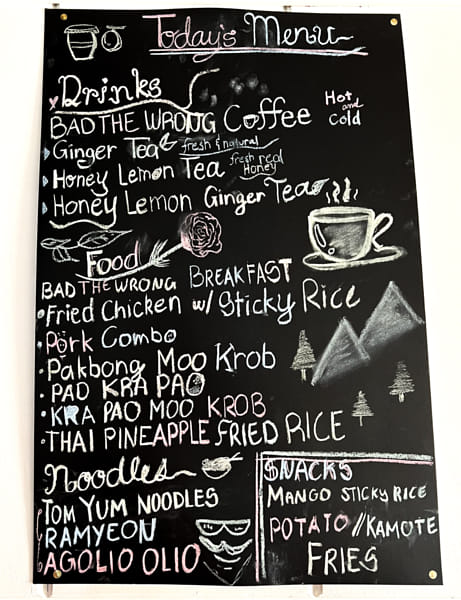 Today's Menu
Drinks
BAD THE WRONG Coffee Hot and Cold
Ginger Tea fresh & natural
Honey Lemon Tea fresh real Honey
Honey Lemon Ginger Tea
Food
BAD THE WRONG BREAKFAST
• Fried Chicken w/ Sticky Rice
• Pork Combo
• Pakbong Moo Krob
• PAD KRA PAO
• KRA PAO MOO KROB
• THAI PINEAPPLE FRIED RICE
Noodles
TOM YUM NOODLES
RAMYEON
AGOLIO OLIO
SNACKS
MANGO STICKY RICE
POTATO//KAMOTE
FRIES